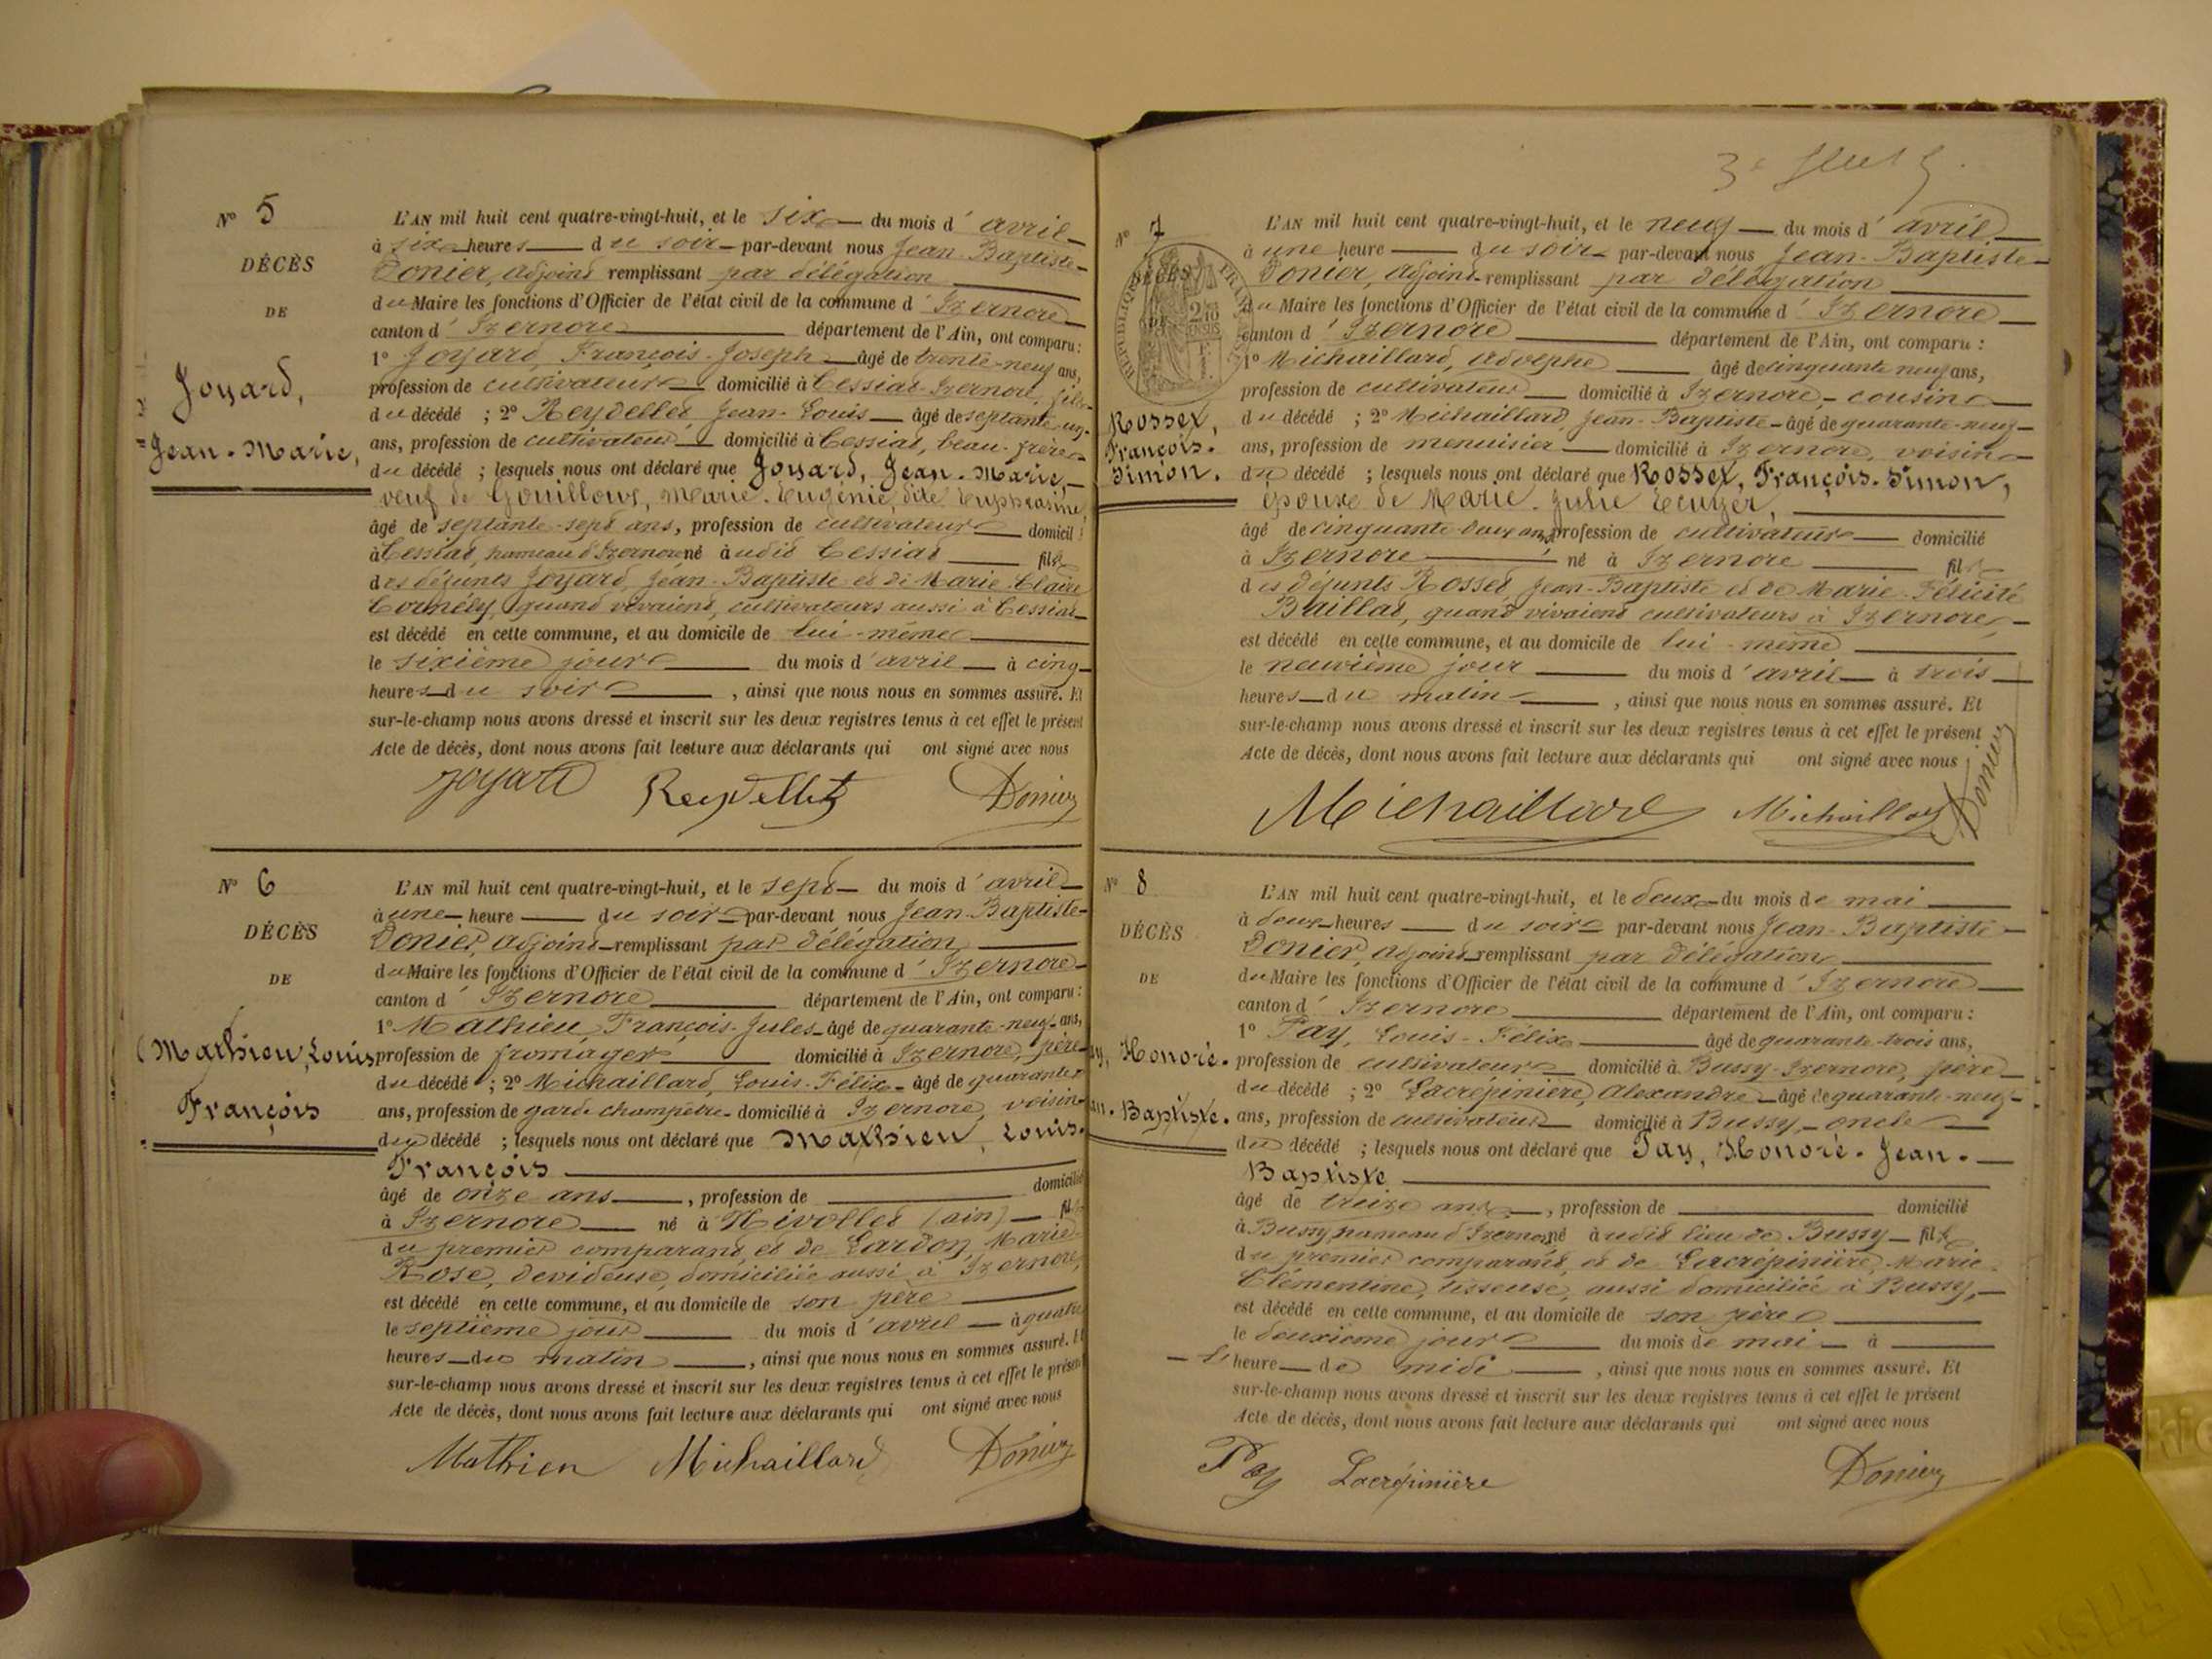 Nº 5
DÉCÈS
DE
Joyard,
Jean-Marie,
L'AN mil huit cent quatre-vingt-huit, et le six du mois d'avril
à six heures du soir par-devant nous Jean-Baptiste
Donier, adjoint remplissant par délégation
du Maire les fonctions d'Officier de l'état civil de la commune d'Izernore
canton d'Izernore département de l'Ain, ont comparu :
1º Joyard, François-Joseph âgé de trente-neuf ans,
profession de cultivateur domicilié à Cessiat-Izernore, fils
du décédé ; 2º Reydellet, Jean-Louis âgé de septante-
ans, profession de cultivateur domicilié à Cessiat, beau-frère
du décédé ; lesquels nous ont déclaré que Joyard, Jean-Marie,
veuf de Gouilloux, Marie-Eugénie, dite Euphrasine,
âgé de septante-sept ans, profession de cultivateur domicil
à Cessiat, hameau d'Izernore né audit Cessiat fils
des défunts Joyard, Jean-Baptiste et de Marie-Claire
Cornély, quand vivaient, cultivateurs aussi à Cessiat
est décédé en cette commune, et au domicile de lui-même
le sixième jour du mois d'avril à cinq
heures du soir, ainsi que nous nous en sommes assuré. Et
sur-le-champ nous avons dressé et inscrit sur les deux registres tenus à cet effet le présent
Acte de décès, dont nous avons fait lecture aux déclarants qui ont signé avec nous
Joyard Reydellet Donier
Nº 6
DÉCÈS
DE
Mathieu, Louis
François
L'AN mil huit cent quatre-vingt-huit, et le sept du mois d'avril
à une heure du soir par-devant nous Jean-Baptiste
Donier, adjoint remplissant par délégation
du Maire les fonctions d'Officier de l'état civil de la commune d'Izernore
canton d'Izernore département de l'Ain, ont comparu :
1º Mathieu, François-Jules âgé de quarante-neuf ans,
profession de fromager domicilié à Izernore, père
du décédé ; 2º Michaillard, Louis-Félix âgé de quarante
ans, profession de garde champêtre domicilié à Izernore, voisin
du décédé ; lesquels nous ont déclaré que Mathieu, Louis-
François
âgé de onze ans, profession de domicilié
à Izernore né à Nivollet (ain) fils
du premier comparant et de Lardon, Marie
Rose, dévideuse, domiciliée aussi à Izernore,
est décédé en cette commune, et au domicile de son père
le septième jour du mois d'avril à quatre
heures du matin, ainsi que nous nous en sommes assuré. Et
sur-le-champ nous avons dressé et inscrit sur les deux registres tenus à cet effet le présent
Acte de décès, dont nous avons fait lecture aux déclarants qui ont signé avec nous
Mathieu Michaillard Donier
3e
Nº 7
DÉCÈS
DE
Rosset,
François-
Simon.
L'AN mil huit cent quatre-vingt-huit, et le neuf du mois d'avril
à une heure du soir par-devant nous Jean-Baptiste
Donier, adjoint remplissant par délégation
du Maire les fonctions d'Officier de l'état civil de la commune d'Izernore
canton d'Izernore département de l'Ain, ont comparu :
1º Michaillard, adolphe âgé de cinquante neuf ans,
profession de cultivateur domicilié à Izernore, cousin
du décédé ; 2º Michaillard, Jean-Baptiste âgé de quarante-neuf
ans, profession de menuisier domicilié à Izernore, voisin
du décédé ; lesquels nous ont déclaré que Rosset, François-Simon,
époux de Marie-Julie Ecuyer,
âgé de cinquante-deux ans, profession de cultivateur domicilié
à Izernore né à Izernore fils
des défunts Rosset Jean-Baptiste et de Marie-Félicité
Baillat, quand vivaient cultivateurs à Izernore,
est décédé en cette commune, et au domicile de lui-même
le neuvième jour du mois d'avril à trois
heures du matin, ainsi que nous nous en sommes assuré. Et
sur-le-champ nous avons dressé et inscrit sur les deux registres tenus à cet effet le présent
Acte de décès, dont nous avons fait lecture aux déclarants qui ont signé avec nous
Michaillard Michaillard Donier
Nº 8
DÉCÈS
DE
Honoré-
Baptiste.
L'AN mil huit cent quatre-vingt-huit, et le deux du mois de mai
à deux heures du soir par-devant nous Jean-Baptiste
Donier, adjoint remplissant par délégation
du Maire les fonctions d'Officier de l'état civil de la commune d'Izernore
canton d'Izernore département de l'Ain, ont comparu :
1º Pay, Louis-Félix âgé de quarante-trois ans,
profession de cultivateur domicilié à Bussy-Izernore, père
du décédé ; 2º Lacrépinière, Alexandre âgé de quarante-neuf
ans, profession de cultivateur domicilié à Bussy, oncle
du décédé ; lesquels nous ont déclaré que Pay, Honoré-Jean-
Baptiste
âgé de treize ans, profession de domicilié
à Bussy, hameau d'Izernore né audit lieu de Bussy fils
du premier comparant et de Lacrépinière, Marie
Clémentine, tisseuse, aussi domiciliée à Bussy,
est décédé en cette commune, et au domicile de son père
le deuxième jour du mois de mai à
l'heure de midi, ainsi que nous nous en sommes assuré. Et
sur-le-champ nous avons dressé et inscrit sur les deux registres tenus à cet effet le présent
Acte de décès, dont nous avons fait lecture aux déclarants qui ont signé avec nous
Pay Lacrépinière Donier